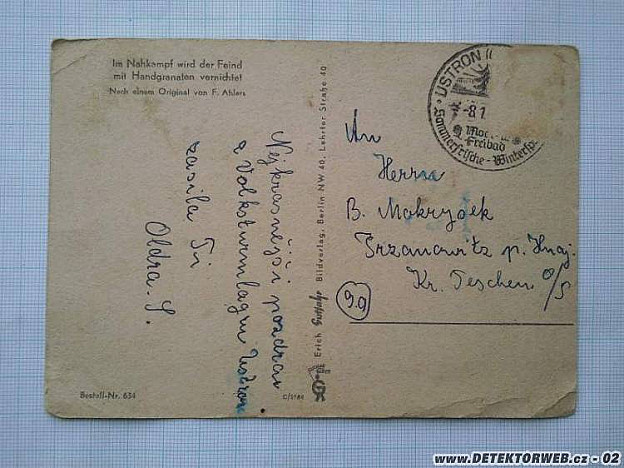 Im Nahkampf wird der Feind
mit Handgranaten vernichtet
Nach einem Original von F. Ahlers
Nejkrasnejši pozdrav
z Volksturmlagru Ustron
zasila Ti
Oldra. S.
Bestell-Nr. 634
Erich Gutjahr Bildverlag, Berlin NW 40, Lehrter Straße 40
USTRON
-8.1
Freibad
Sommerfrische - Wintersp
An
Herrn
B. Mokrysek
Trzanowitz p. Hnoj.
Kr. Teschen O/S
www.DETEKTORWEB.cz - 02